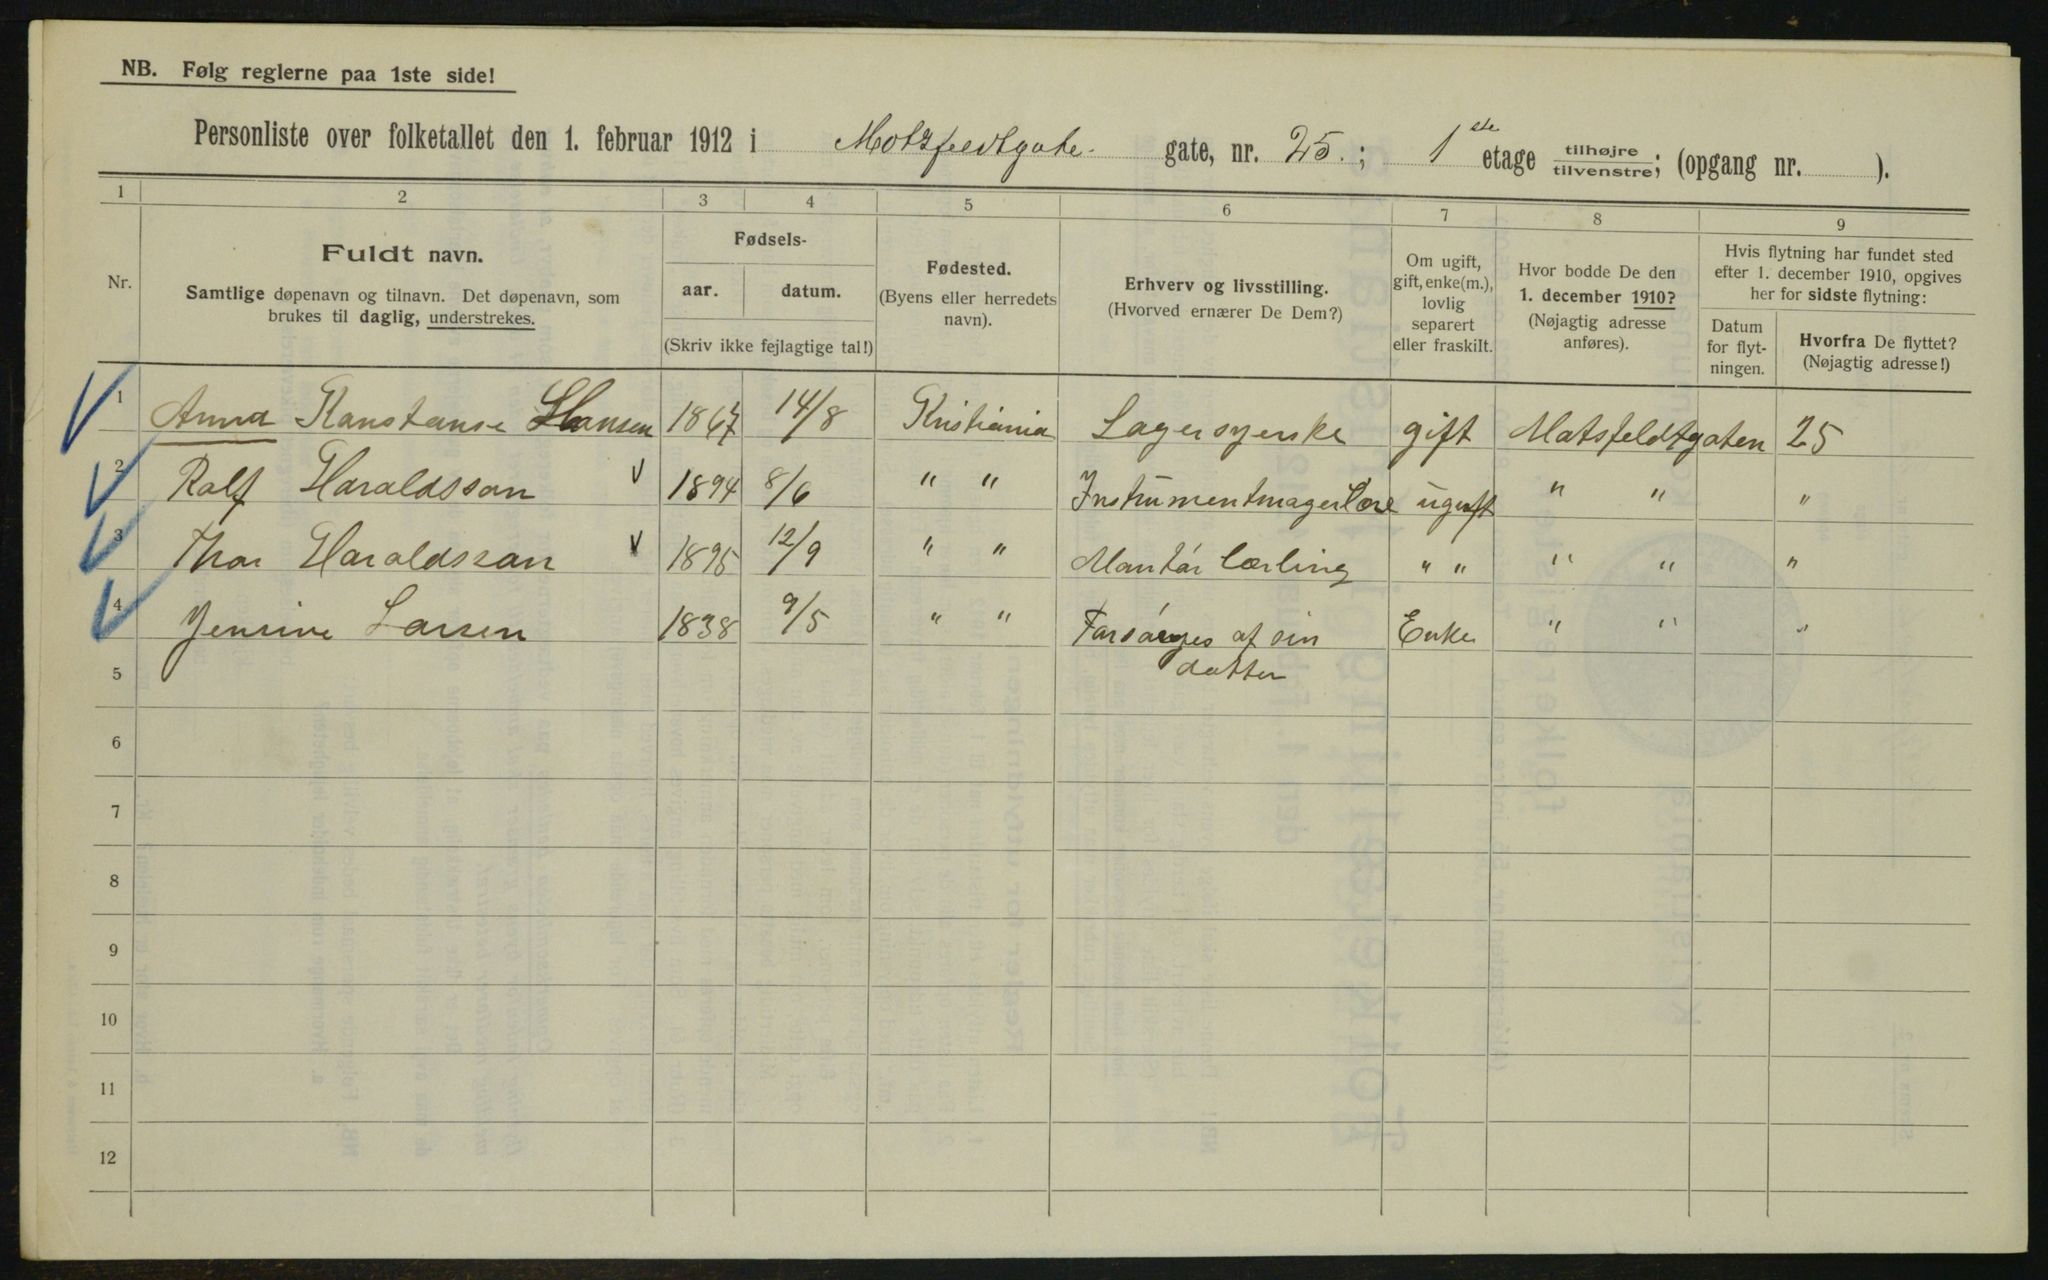 NB. Følg reglerne paa 1ste side!
Personliste over folketallet den 1. februar 1912 i Motzfeldtgate. gate, nr. 25.; 1ste etage tilhøjre/tilvenstre; (opgang nr. ).
1 2 3 4 5 6 7 8 9
Nr.
Fuldt navn.
Samtlige døpenavn og tilnavn. Det døpenavn, som
brukes til daglig, understrekes.
Fødsels-
aar. datum.
(Skriv ikke fejlagtige tal!)
Fødested.
(Byens eller herredets
navn).
Erhverv og livsstilling.
(Hvorved ernærer De Dem?)
Om ugift,
gift, enke(m.),
lovlig
separert
eller fraskilt.
Hvor bodde De den
1. december 1910?
(Nøjagtig adresse
anføres).
Hvis flytning har fundet sted
efter 1. december 1910, opgives
her for sidste flytning:
Datum
for flyt-
ningen.
Hvorfra De flyttet?
(Nøjagtig adresse!)
1 Anna Konstanse Hansen 1867 14/8 Kristiania Lagersyerske gift Motsfeldtgaten 25
2 Rolf Haraldsson 1894 8/6 " " Instrumentmagerlære ugift " " "
3 Thor Haraldsson 1895 12/9 " " Montör lærling " " " " "
4 Jensine Larsen 1838 9/5 " " Forsörges af sin Enke " " "
datter
5
6
7
8
9
10
11
12